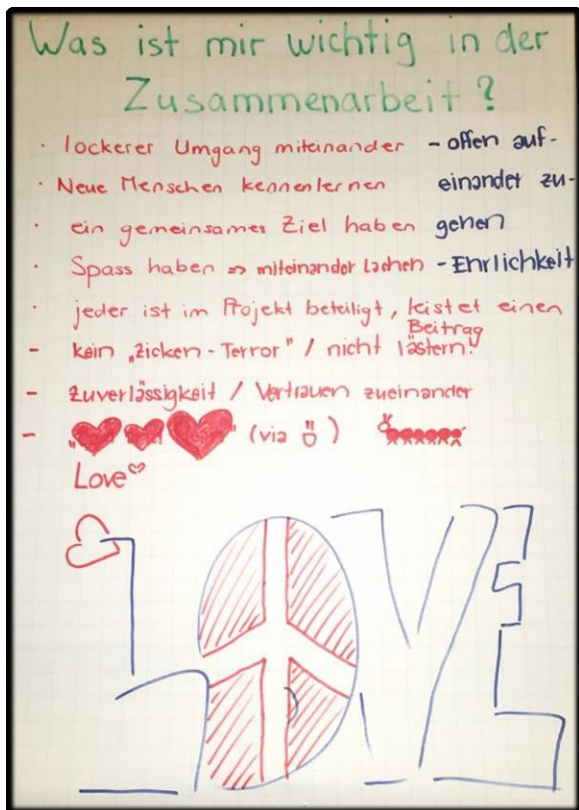 Was ist mir wichtig in der
Zusammenarbeit?
· lockerer Umgang miteinander - offen auf-
· Neue Menschen kennenlernen einander zu-
· ein gemeinsames Ziel haben gehen
· Spass haben => miteinander lachen - Ehrlichkeit
· jeder ist im Projekt beteiligt, leistet einen
Beitrag
- kein „Zicken-Terror" / nicht lästern!
- Zuverlässigkeit / Vertrauen zueinander
- „ " (via )
Love
LOVE